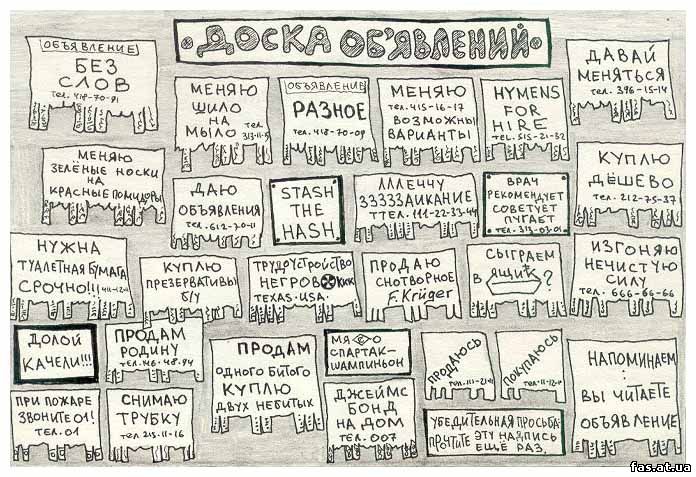 ДОСКА ОБ'ЯВЛЕНИЙ
ОБЪЯВЛЕНИЕ
БЕЗ
СЛОВ
ТЕЛ. 418-70-91
МЕНЯЮ
ШИЛО
НА
МЫЛО ТЕЛ.
313-11-5
ОБЪЯВЛЕНИЕ
РАЗНОЕ
ТЕЛ. 418-70-09
МЕНЯЮ
ТЕЛ. 415-16-17
ВОЗМОЖНЫ
ВАРИАНТЫ
HYMENS
FOR
HIRE
TEL. 515-21-52
ДАВАЙ
МЕНЯТЬСЯ
ТЕЛ. 396-15-14
МЕНЯЮ
ЗЕЛЁНЫЕ НОСКИ
НА
КРАСНЫЕ ПОМИДОРЫ
ДАЮ
ОБЪЯВЛЕНИЯ
ТЕЛ. 612-70-11
STASH
THE
HASH
ЛЛЛЕЧЧУ
ЗЗЗЗЗАИКАНИЕ
ТТЕЛ. 111-22-33-44
ВРАЧ
РЕКОМЕНДУЕТ
СОВЕТУЕТ
ПУГАЕТ
ТЕЛ. 313-03-01
КУПЛЮ
ДЁШЕВО
ТЕЛ. 212-75-37
НУЖНА
ТУАЛЕТНАЯ БУМАГА
СРОЧНО!!!
КУПЛЮ
ПРЕЗЕРВАТИВЫ
Б/У
ТРУДОУСТРОЙСТВО
НЕГРОВ ККК
TEXAS. USA.
ПРОДАЮ
СНОТВОРНОЕ
F. Krüger
СЫГРАЕМ
В ЯЩИК?
ИЗГОНЯЮ
НЕЧИСТУЮ
СИЛУ
ТЕЛ. 666-66-66
ДОЛОЙ
КАЧЕЛИ!!!
ПРОДАМ
РОДИНУ
ТЕЛ. 146-48-94
ПРОДАМ
ОДНОГО БИТОГО
КУПЛЮ
ДВУХ НЕБИТЫХ
МЯСО
СПАРТАК-
ШАМПИНЬОН
ПРОДАЮСЬ
ТЕЛ. 113-21-11
ПОКУПАЮСЬ
НАПОМИНАЕМ:
ВЫ ЧИТАЕТЕ
ОБЪЯВЛЕНИЕ
ПРИ ПОЖАРЕ
ЗВОНИТЕ 01!
ТЕЛ. 01
СНИМАЮ
ТРУБКУ
ТЕЛ. 215-11-16
ДЖЕЙМС
БОНД
НА ДОМ
ТЕЛ. 007
УБЕДИТЕЛЬНАЯ ПРОСЬБА:
ПРОЧТИТЕ ЭТУ НАДПИСЬ
ЕЩЁ РАЗ.
fas.at.ua